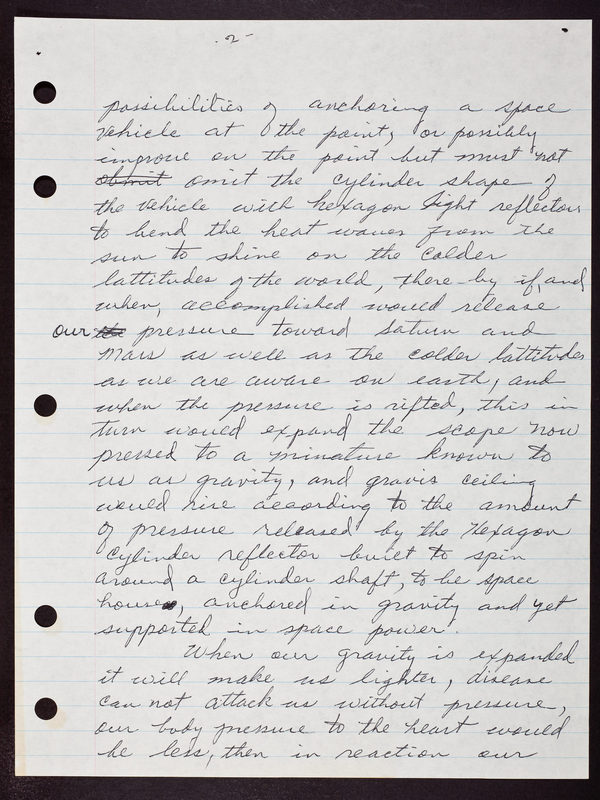 -2-
possibilities of anchoring a space
vehicle at the point, or possibly
improve on the point but must not
obmit omit the cylinder shape of
the vehicle with hexagon light reflectors
to bend the heat waves from the
sun to shine on the colder
lattitudes of the world, there-by if, and
when, accomplished would release
our the pressure toward Saturn and
Mars as well as the colder lattitudes
as we are aware on earth, and
when the pressure is rifted, this in
turn would expand the scope now
pressed to a minature known to
us as gravity, and gravis ceiling
would rise according to the amount
of pressure released by the Hexagon
Cylinder reflector built to spin
around a cylinder shaft, to be space
houses, anchored in gravity and yet
supported in space power.
When our gravity is expanded
it will make us lighter, disease
can not attack us without pressure,
our body pressure to the heart would
be less, then in reaction our